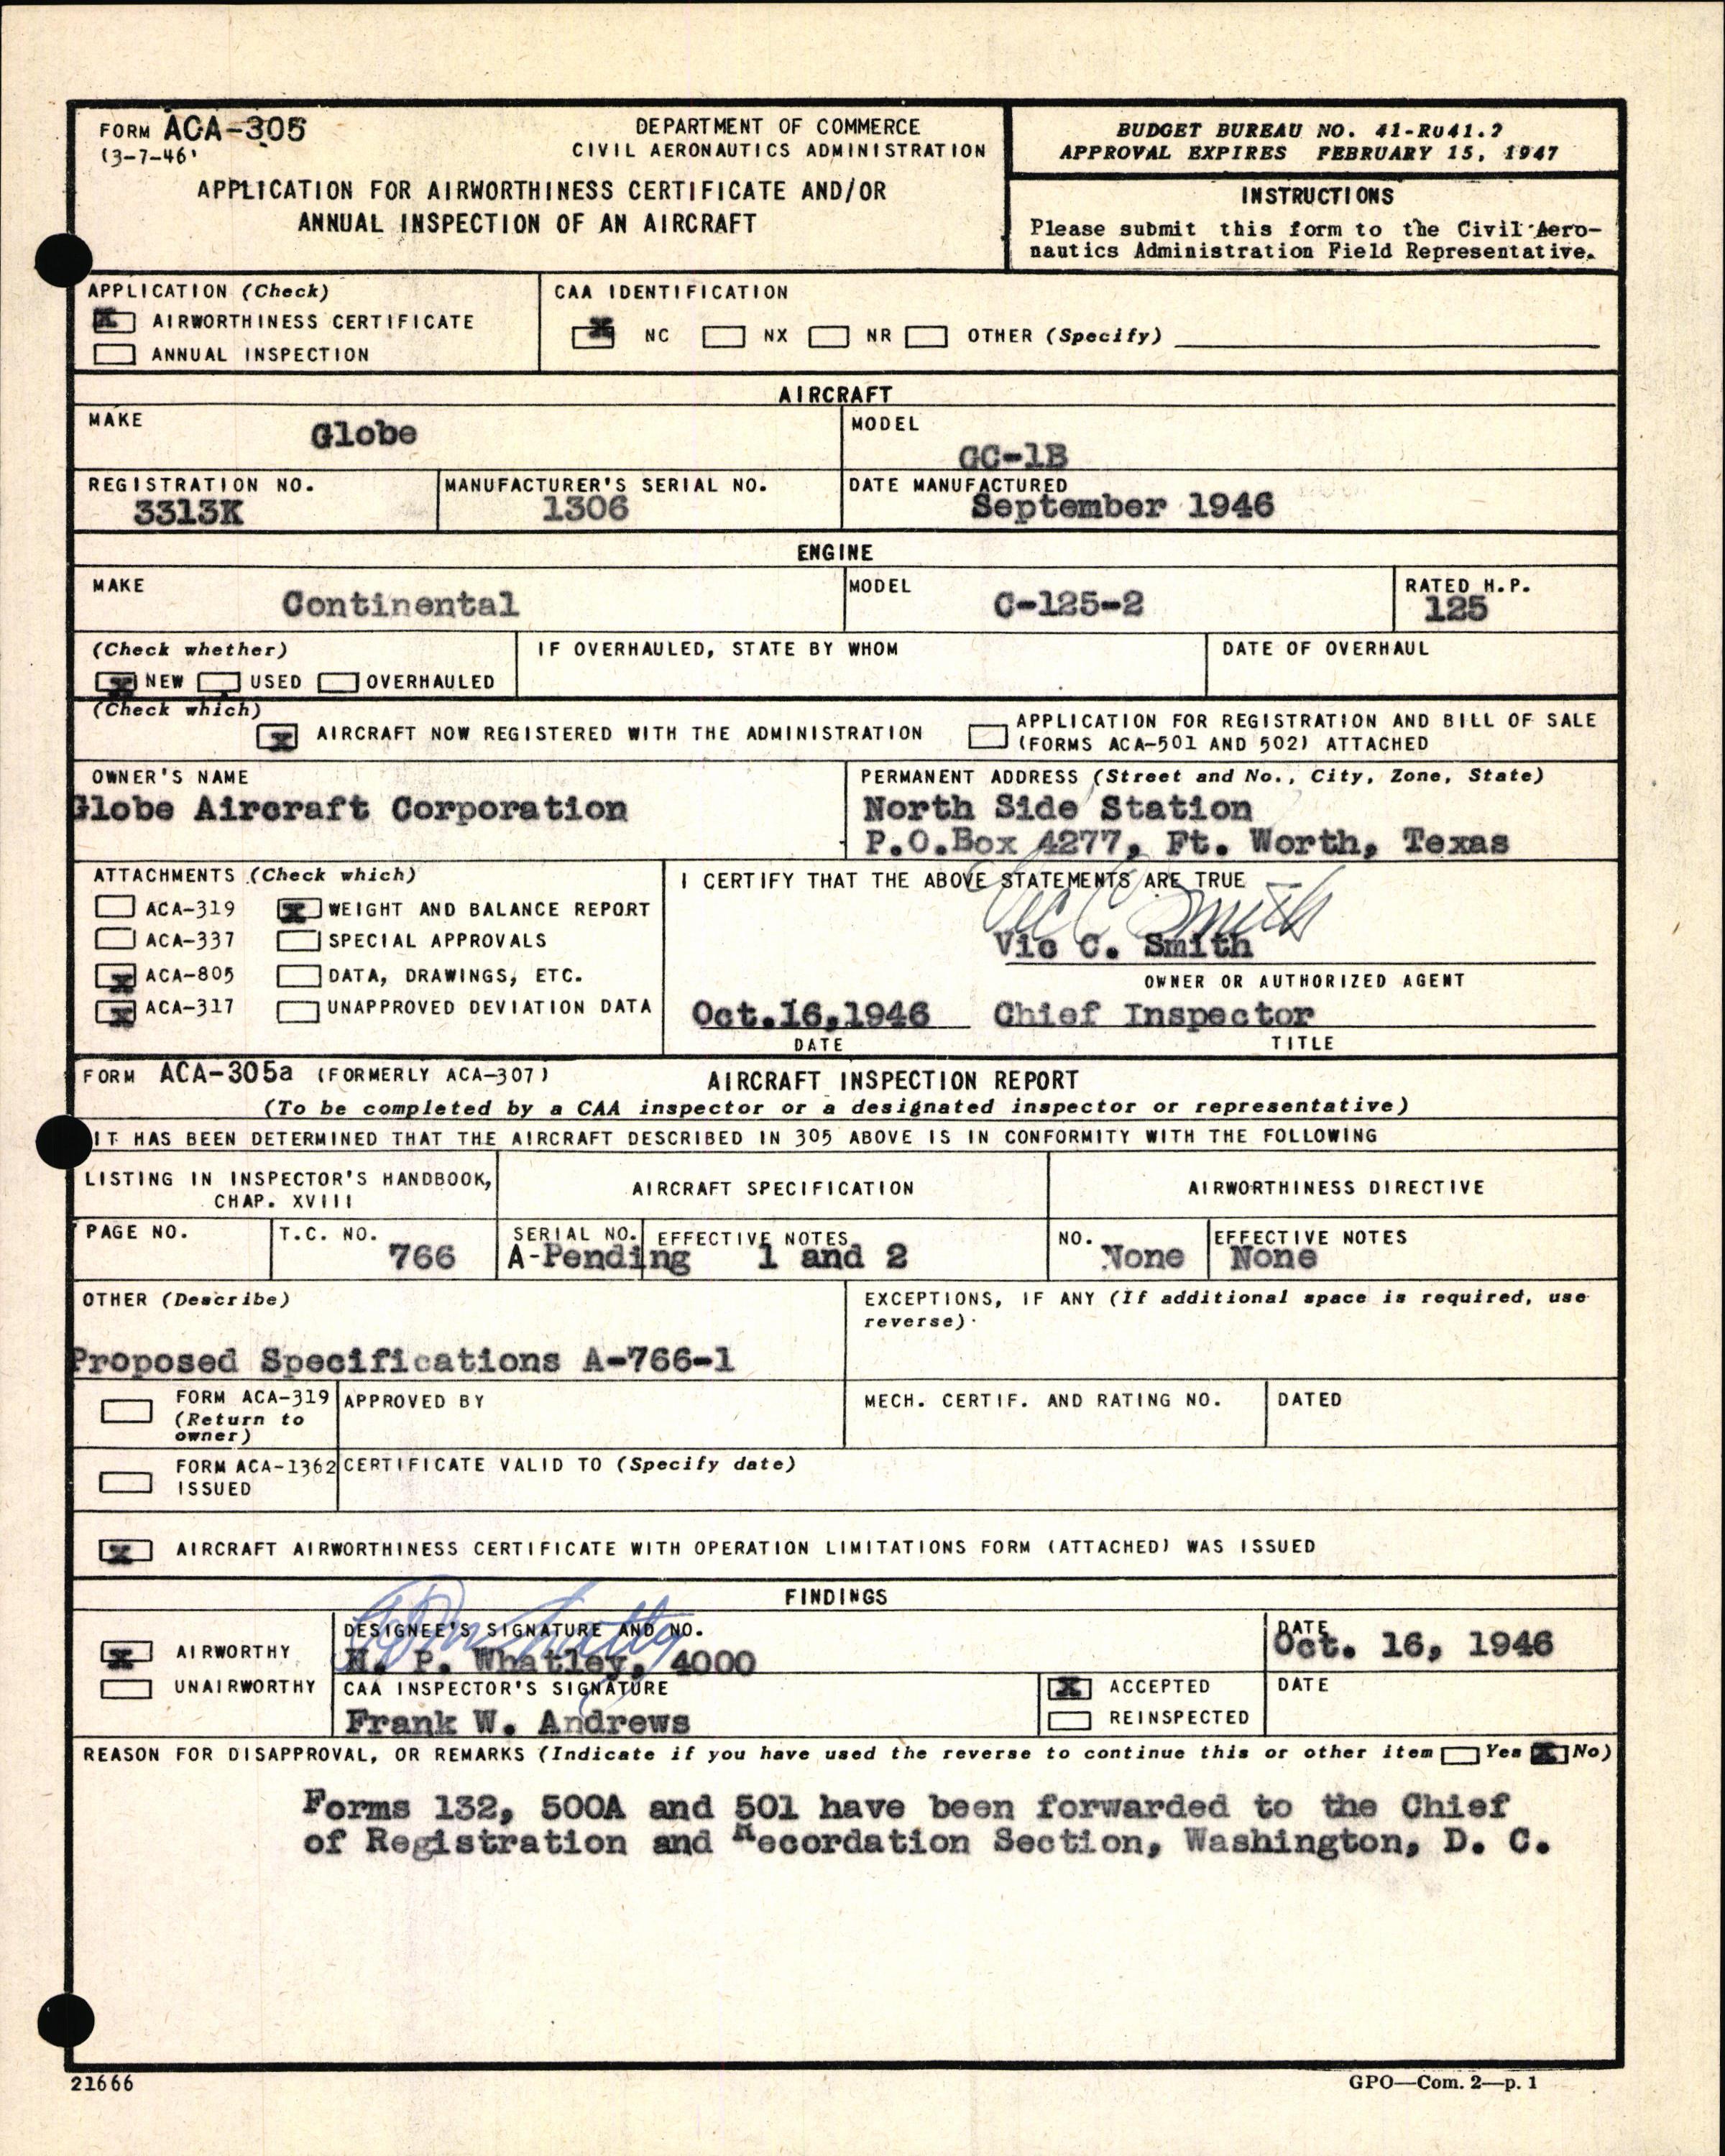 FORM ACA-305
(3-7-46)
DEPARTMENT OF COMMERCE
CIVIL AERONAUTICS ADMINISTRATION
APPLICATION FOR AIRWORTHINESS CERTIFICATE AND/OR
ANNUAL INSPECTION OF AN AIRCRAFT
BUDGET BUREAU NO. 41-R041.2
APPROVAL EXPIRES FEBRUARY 15, 1947
INSTRUCTIONS
Please submit this form to the Civil Aero-
nautics Administration Field Representative.
APPLICATION (Check)
X AIRWORTHINESS CERTIFICATE
ANNUAL INSPECTION
CAA IDENTIFICATION
X NC NX NR OTHER (Specify)
AIRCRAFT
MAKE
Globe
MODEL
GC-1B
REGISTRATION NO.
3313K
MANUFACTURER'S SERIAL NO.
1306
DATE MANUFACTURED
September 1946
ENGINE
MAKE
Continental
MODEL
C-125-2
RATED H.P.
125
(Check whether)
X NEW USED OVERHAULED
IF OVERHAULED, STATE BY WHOM
DATE OF OVERHAUL
(Check which)
X AIRCRAFT NOW REGISTERED WITH THE ADMINISTRATION
APPLICATION FOR REGISTRATION AND BILL OF SALE
(FORMS ACA-501 AND 502) ATTACHED
OWNER'S NAME
Globe Aircraft Corporation
PERMANENT ADDRESS (Street and No., City, Zone, State)
North Side Station
P.O.Box 4277, Ft. Worth, Texas
ATTACHMENTS (Check which)
ACA-319 X WEIGHT AND BALANCE REPORT
ACA-337 SPECIAL APPROVALS
X ACA-805 DATA, DRAWINGS, ETC.
X ACA-317 UNAPPROVED DEVIATION DATA
I CERTIFY THAT THE ABOVE STATEMENTS ARE TRUE
Vic C Smith
Vic C. Smith
OWNER OR AUTHORIZED AGENT
Oct.16,1946 Chief Inspector
DATE TITLE
FORM ACA-305a (FORMERLY ACA-307) AIRCRAFT INSPECTION REPORT
(To be completed by a CAA inspector or a designated inspector or representative)
IT HAS BEEN DETERMINED THAT THE AIRCRAFT DESCRIBED IN 305 ABOVE IS IN CONFORMITY WITH THE FOLLOWING
LISTING IN INSPECTOR'S HANDBOOK,
CHAP. XVIII
AIRCRAFT SPECIFICATION
AIRWORTHINESS DIRECTIVE
PAGE NO.
T.C. NO.
766
SERIAL NO.
A-Pending
EFFECTIVE NOTES
1 and 2
NO.
None
EFFECTIVE NOTES
None
OTHER (Describe)
Proposed Specifications A-766-1
EXCEPTIONS, IF ANY (If additional space is required, use
reverse).
FORM ACA-319
(Return to
owner)
APPROVED BY
MECH. CERTIF. AND RATING NO.
DATED
FORM ACA-1362
ISSUED
CERTIFICATE VALID TO (Specify date)
X AIRCRAFT AIRWORTHINESS CERTIFICATE WITH OPERATION LIMITATIONS FORM (ATTACHED) WAS ISSUED
FINDINGS
X AIRWORTHY
UNAIRWORTHY
DESIGNEE'S SIGNATURE AND NO.
H. P. Whatley, 4000
DATE
Oct. 16, 1946
CAA INSPECTOR'S SIGNATURE
Frank W. Andrews
X ACCEPTED
REINSPECTED
DATE
REASON FOR DISAPPROVAL, OR REMARKS (Indicate if you have used the reverse to continue this or other item Yes X No)
Forms 132, 500A and 501 have been forwarded to the Chief
of Registration and Recordation Section, Washington, D. C.
21666
GPO—Com. 2—p. 1